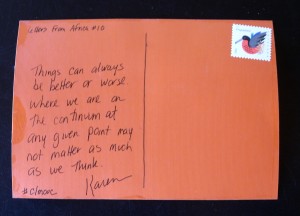 Letters from Africa #10
Things can always
be better or worse.
Where we are on
the continuum at
any given point may
not matter as much
as we think.
Karen